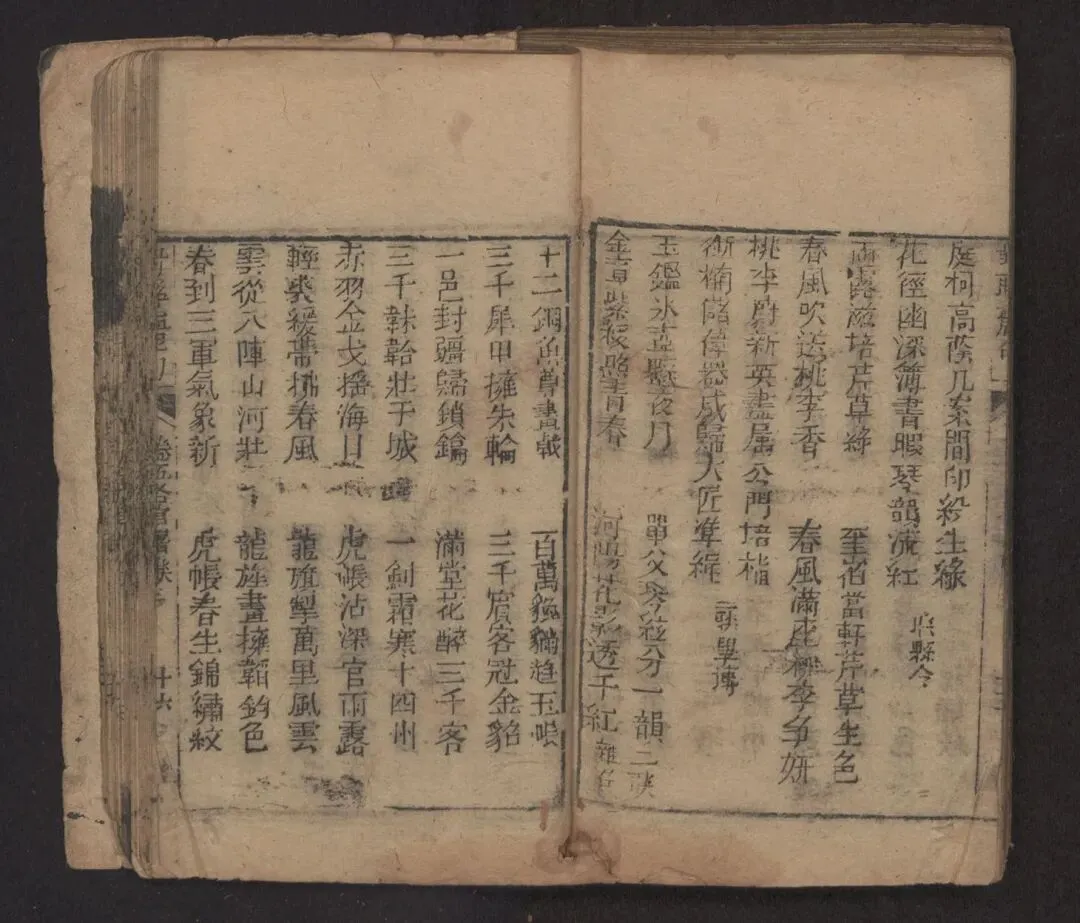 庭柯高蔭几案間印綬生綠
花徑幽深簿書暇琴韻流紅 縣令
露滋培芹草綠 至省當軒芹草生色
春風吹送桃李香 春風滿座穠李爭妍
桃李蔚新英盡屬公門培植
衡桷儲偉器咸歸大匠準繩 學博
玉鑑氷壺懸夜月 單父琴絃分一韻
金章紫綬照青春 河陽花影透千紅
十二銅魚尊畫戟 百萬貔貅趨玉帳
三千犀甲擁朱輪 三千賓客冠金貂
一邑封疆歸鎖鑰 滿堂花醉三千客
三千韎韐壯干城 一劍霜寒十四州
赤羽金戈搖海日 虎帳沾深宫雨露
輕裘緩帶拂春風 龍旗掣萬里風雲
雲從八陣山河壯 龍旌畫擁韜鈐色
春到三軍氣象新 虎帳春生錦繡紋
卷五 廿六